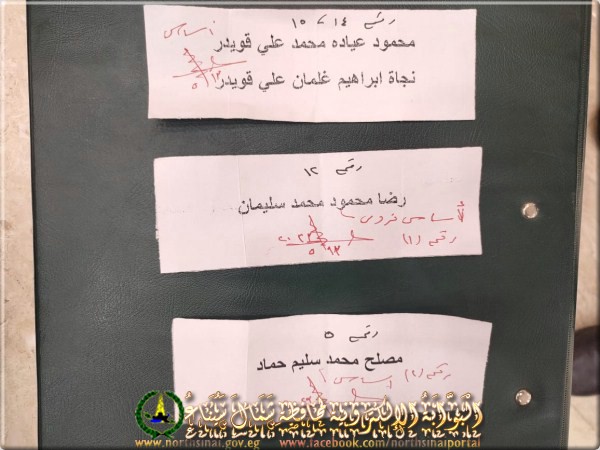 رقم ١٤ ، ١٥
اساسى
محمود عياده محمد علي قويدر
نجاة ابراهيم غلمان علي قويدر
رقم ١٢
رضا محمود محمد سليمان
أساسى فردى
رقم (١)
رقم ٥
مصلح محمد سليم حماد
رقم (٢)
اساسى
البوابة الإلكترونية لمحافظة شمال سيناء
www.northsinai.gov.eg - www.facebook.com/northsinaiportal